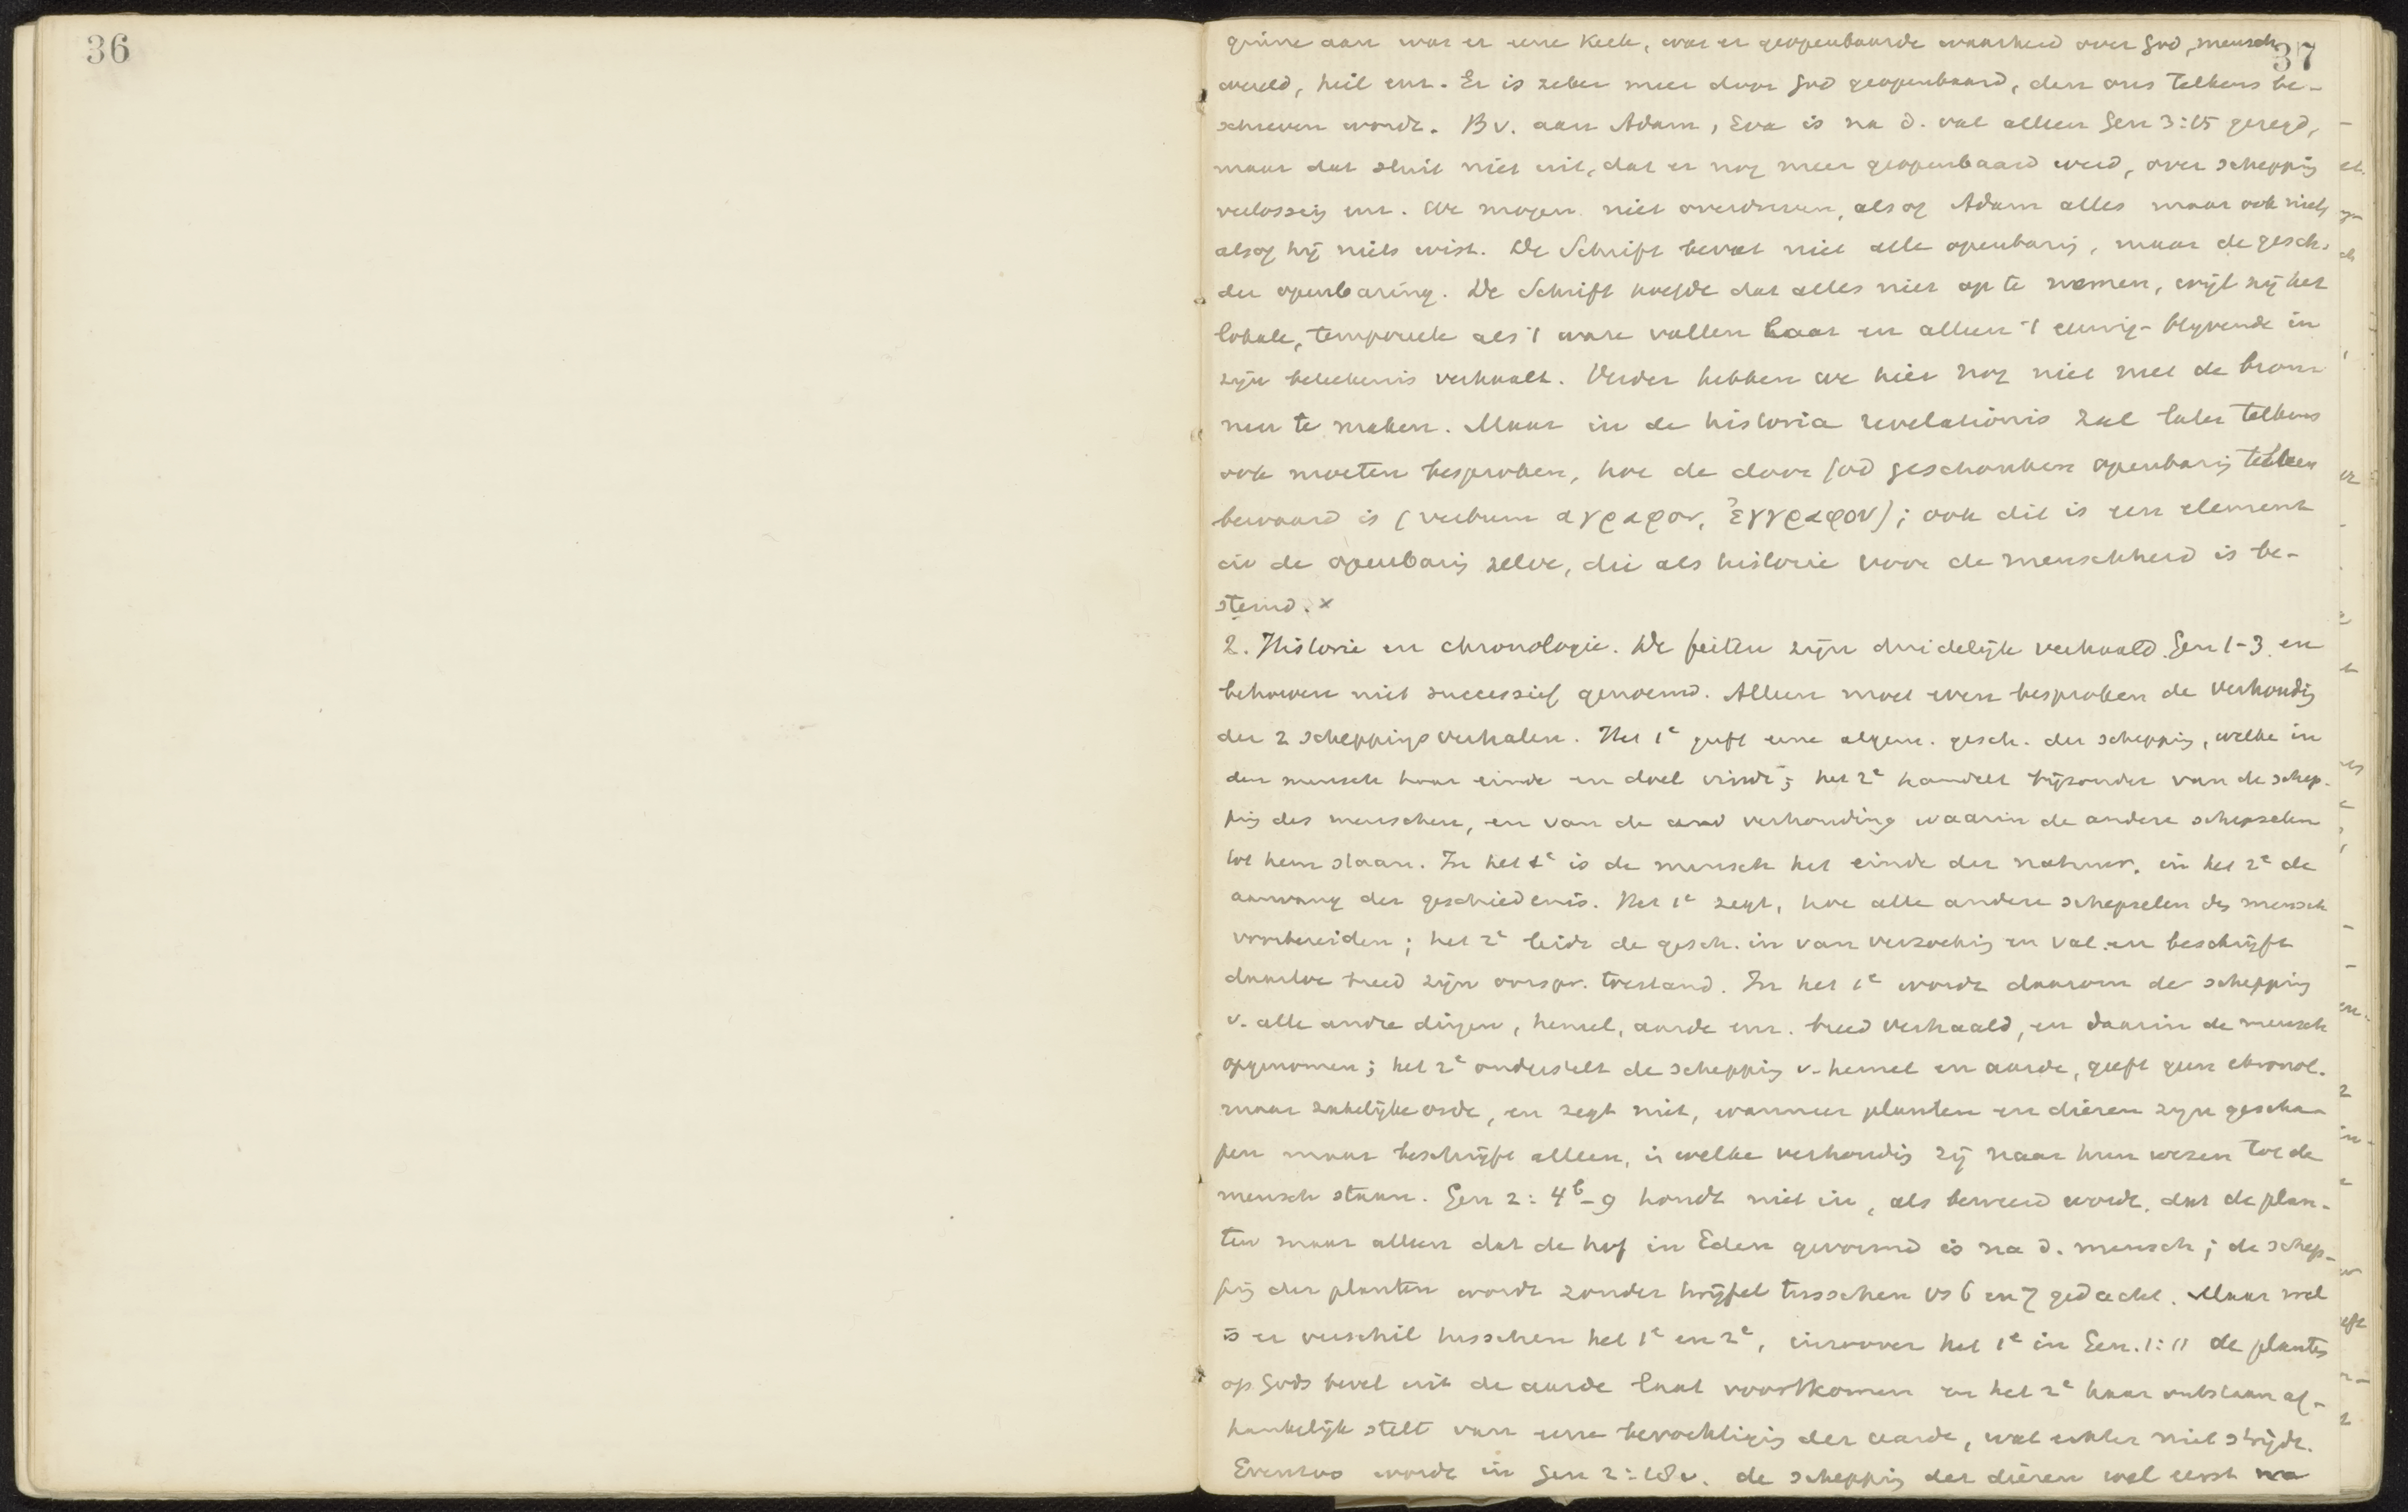 36
37
ginne aan was er eene Kerk, was er geopenbaarde waarheid over God, mensch,
wereld, heil enz. Er is zeker meer door God geopenbaard, dan ons telkens be-
schreven wordt. Bv. aan Adam, Eva is na d. val alleen Gen 3:15 gezegd,
maar dat sluit niet uit, dat er nog meer geopenbaard werd, over schepping
verlossing enz. We mogen niet overdrijven, alsof Adam alles maar ook niet,
alsof hij niets wist. De Schrift bevat niet alle openbaring, maar de gesch.
der openbaring. De Schrift hoefde dat alles niet op te nemen, wijl zij het
lokale, temporeele als 't ware vallen laat en alleen 't eeuwig-blijvende in
zijn beteekenis verhaalt. Verder hebben we hier nog niet met de bron-
nen te maken. Maar in de historia revelationis zal later telkens
ook moeten besproken, hoe de door God geschonken openbaring telkens
bewaard is (verbum αγραφον, ἐγγραφον); ook dit is een element
in de openbaring zelve, die als historie voor de menschheid is be-
stemd. x
2. Historie en chronologie. De feiten zijn duidelijk verhaald Gen 1-3 en
behoeven niet successief genoemd. Alleen moet even besproken de verhoudig
der 2 scheppingsverhalen. Het 1e geeft eene algem. gesch. der schepping, welke in
den mensch haar einde en doel vindt; het 2e handelt bijzonder van de schep-
ping des menschen, en van de verhouding waarin de andere schepselen
tot hem staan. In het 1e is de mensch het einde der natuur, in het 2e de
aanvang der geschiedenis. Het 1e zegt, hoe alle andere schepselen den mensch
voorbereiden; het 2e leidt de gesch. in van verzoeking en val en beschrijft
daartoe breed zijn oorspr. toestand. In het 1e wordt daarom de schepping
v. alle andre dingen, hemel, aarde enz. breed verhaald, en daarin de mensch
opgenomen; het 2e onderstelt de schepping v. hemel en aarde, geeft geen chronol.
maar zakelijke orde, en zegt niet, wanneer planten en dieren zijn gescha-
pen maar beschrijft alleen, in welke verhoudig zij naar hun wezen tot de
mensch staan. Gen 2:4b-9 houdt niet in, als beweerd wordt, dat de plan-
ten maar alleen dat de hof in Eden gevormd is na d. mensch; de schep-
ping der planten wordt zonder twijfel tusschen vs 6 en 7 gedacht. Maar wel
is er verschil tusschen het 1e en 2e, inzoover het 1e in Gen. 1:11 de planten
op Gods bevel uit de aarde laat voortkomen en het 2e haar ontstaan af-
hankelijk stelt van eene bevochtiging der aarde, wat echter niet strijdt.
Evenzoo wordt in Gen 2:18v. de schepping der dieren wel eerst na